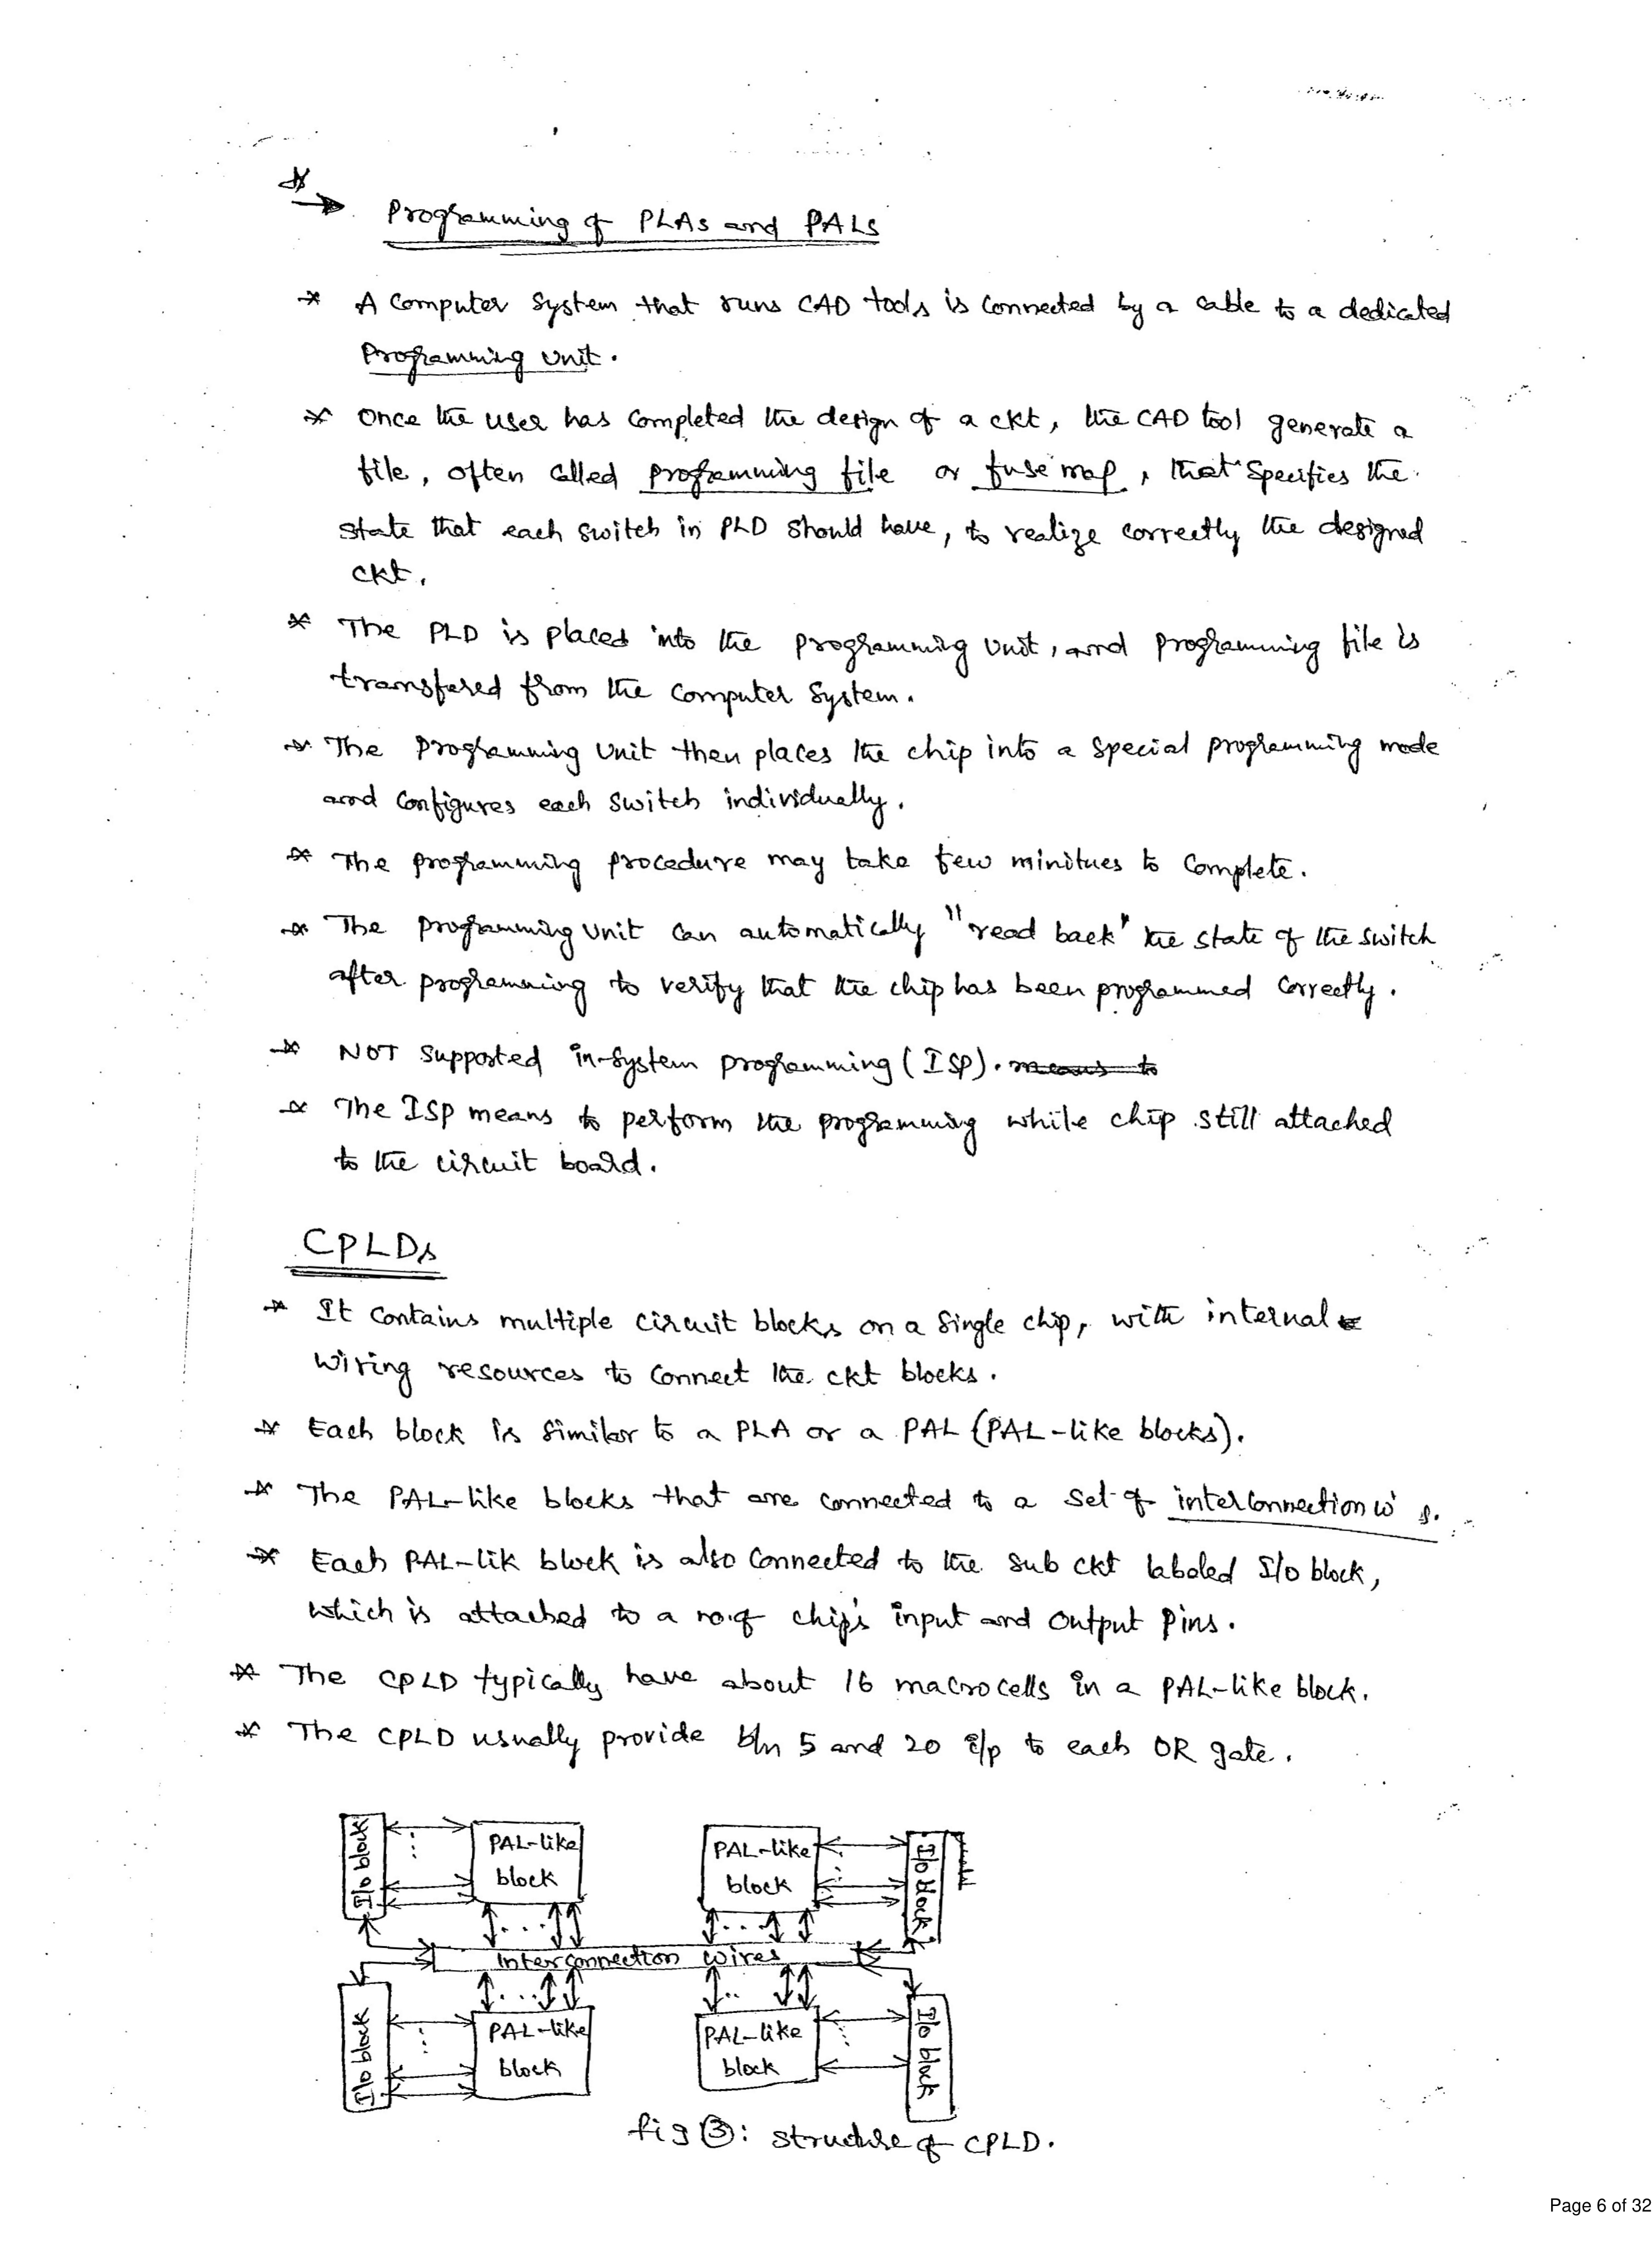 * → Programming of PLAs and PALs
* A Computer System that runs CAD tools is Connected by a cable to a dedicated
Programming Unit.
* Once the user has completed the design of a ckt, the CAD tool generate a
file, often called programming file or fuse map, that specifies the
state that each switch in PLD should have, to realize correctly the designed
ckt.
* The PLD is placed into the programming unit, and programming file is
transfered from the computer system.
* The Programming Unit then places the chip into a special programming mode
and configures each switch individually.
* The programming procedure may take few minitues to complete.
* The programming unit can automatically "read back" the state of the switch
after programming to verify that the chip has been programmed correctly.
* NOT Supported in-system programming (ISP). means to
* The ISP means to perform the programming while chip still attached
to the circuit board.
CPLDs
* It contains multiple circuit blocks on a single chip, with internal
wiring resources to connect the ckt blocks.
* Each block is similar to a PLA or a PAL (PAL-like blocks).
* The PAL-like blocks that are connected to a set of interconnection w s.
* Each PAL-lik block is also connected to the sub ckt labeled I/O block,
which is attached to a no.of chip's input and output pins.
* The CPLD typically have about 16 macrocells in a PAL-like block.
* The CPLD usually provide b/n 5 and 20 i/p to each OR gate.
I/o block
PAL-like
block
PAL-like
block
I/o block
Interconnection wires
I/o block
PAL-like
block
PAL-like
block
I/o block
fig ③: structure of CPLD.
Page 6 of 32